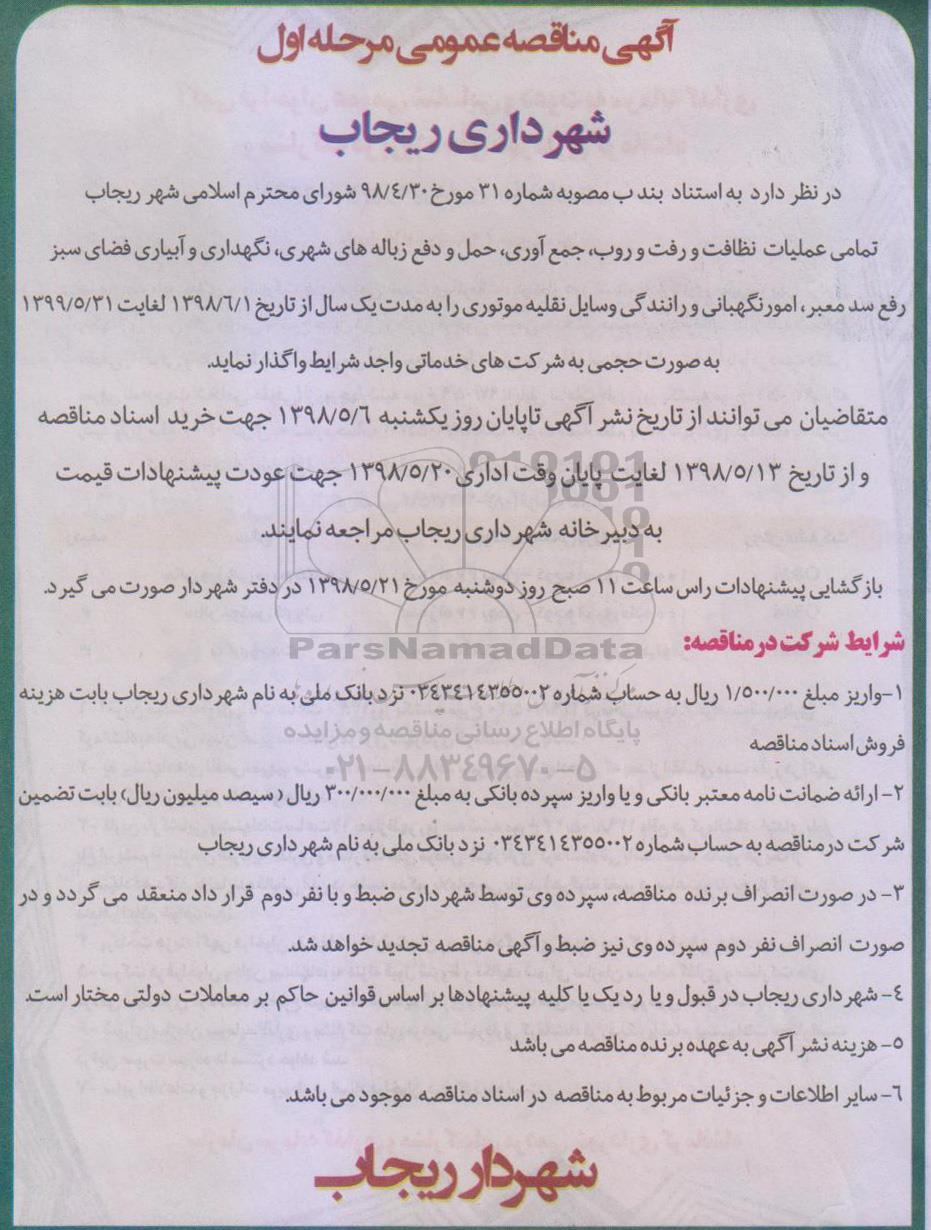 آگهی مناقصه عمومی مرحله اول
شهرداری ریجاب
در نظر دارد به استناد بند ب مصوبه شماره ۳۱ مورخ ۹۸/٤/۳۰ شورای محترم اسلامی شهر ریجاب
تمامی عملیات نظافت و رفت و روب، جمع آوری، حمل و دفع زباله های شهری، نگهداری و آبیاری فضای سبز
رفع سد معبر، امور نگهبانی و رانندگی وسایل نقلیه موتوری را به مدت یک سال از تاریخ ۱۳۹۸/٦/۱ لغایت ۱۳۹۹/۵/۳۱
به صورت حجمی به شرکت های خدماتی واجد شرایط واگذار نماید.
متقاضیان می توانند از تاریخ نشر آگهی تا پایان روز یکشنبه ۱۳۹۸/۵/٦ جهت خرید اسناد مناقصه
و از تاریخ ۱۳۹۸/۵/۱۳ لغایت پایان وقت اداری ۱۳۹۸/۵/۲۰ جهت عودت پیشنهادات قیمت
به دبیرخانه شهرداری ریجاب مراجعه نمایند.
بازگشایی پیشنهادات راس ساعت ۱۱ صبح روز دوشنبه مورخ ۱۳۹۸/۵/۲۱ در دفتر شهردار صورت می گیرد.
شرایط شرکت در مناقصه:
ParsNamadData
۱-واریز مبلغ ۱/۵۰۰/۰۰۰ ریال به حساب شماره ۰۳٤۳٤۱٤۳۵۵۰۰۲ نزد بانک ملی به نام شهرداری ریجاب بابت هزینه
پایگاه اطلاع رسانی مناقصه و مزایده
فروش اسناد مناقصه
۰۲۱-۸۸۳٤۹٦۷۰-۵
۲- ارائه ضمانت نامه معتبر بانکی و یا واریز سپرده بانکی به مبلغ ۳۰۰/۰۰۰/۰۰۰ ریال (سیصد میلیون ریال) بابت تضمین
شرکت در مناقصه به حساب شماره ۰۳٤۳٤۱٤۳۵۵۰۰۲ نزد بانک ملی به نام شهرداری ریجاب
۳- در صورت انصراف برنده مناقصه، سپرده وی توسط شهرداری ضبط و با نفر دوم قرار داد منعقد می گردد و در
صورت انصراف نفر دوم سپرده وی نیز ضبط و آگهی مناقصه تجدید خواهد شد.
٤- شهرداری ریجاب در قبول و یا رد یک یا کلیه پیشنهادها بر اساس قوانین حاکم بر معاملات دولتی مختار است.
۵- هزینه نشر آگهی به عهده برنده مناقصه می باشد
٦- سایر اطلاعات و جزئیات مربوط به مناقصه در اسناد مناقصه موجود می باشد.
شهردار ریجاب